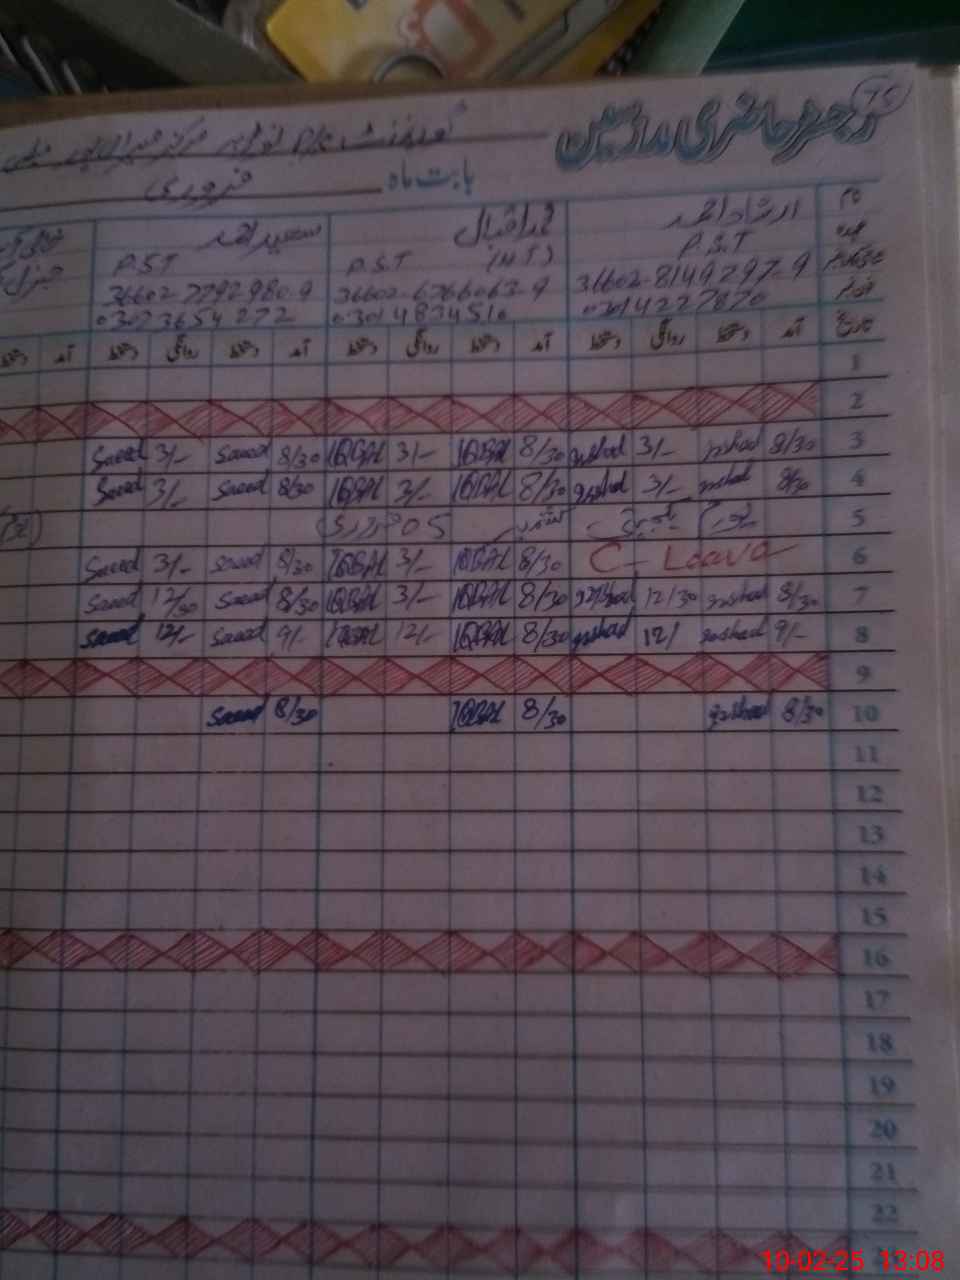 75
رجسٹر حاضری مدرسین
گورنمنٹ
بابت ماہ فروری
نام ارشاد احمد اقبال سعید احمد
عہدہ P.S.T P.S.T (HT) P.S.T
36602-8149297-9 36602-6766063-9 36602-7792980-9
03014227870 03014834510 03023654272
تاریخ آمد دستخط روانگی دستخط آمد دستخط روانگی دستخط آمد دستخط روانگی دستخط آمد
1
2
Saeed 3/- Saeed 8/30 IQBAL 3/- IQBAL 8/30 irshad 3/- irshad 8/30 3
Saeed 3/- Saeed 8/30 IQBAL 3/- IQBAL 8/30 irshad 3/- irshad 8/30 4
یوم یکجہتی کشمیر 05 فروری 5
Saeed 3/- Saeed 8/30 IQBAL 3/- IQBAL 8/30 C- Leave 6
Saeed 12/30 Saeed 8/30 IQBAL 3/- IQBAL 8/30 irshad 12/30 irshad 8/30 7
Saeed 12/- Saeed 9/- IQBAL 12/- IQBAL 8/30 irshad 12/ irshad 9/- 8
9
Saeed 8/30 IQBAL 8/30 irshad 8/30 10
11
12
13
14
15
16
17
18
19
20
21
22
10-02-25 13:08